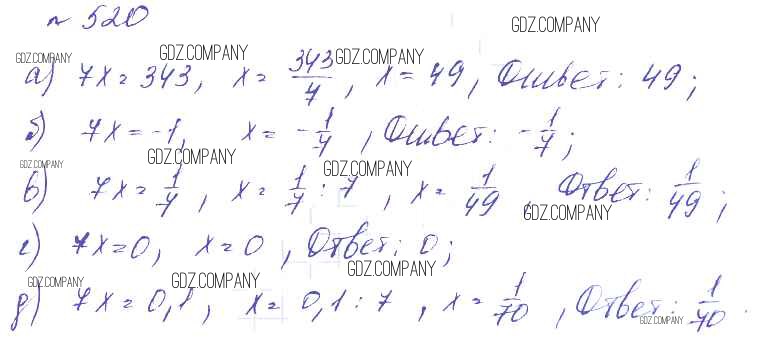 № 520
GDZ.COMPANY
GDZ.COMPANY GDZ.COMPANY GDZ.COMPANY
а) 7x = 343, x = 343/7, x = 49, Ответ: 49;
б) 7x = -1, x = -1/7, Ответ: -1/7;
GDZ.COMPANY GDZ.COMPANY GDZ.COMPANY
в) 7x = 1/7, x = 1/7 : 7, x = 1/49 Ответ: 1/49;
GDZ.COMPANY
г) 7x = 0, x = 0, Ответ: 0;
GDZ.COMPANY GDZ.COMPANY GDZ.COMPANY
д) 7x = 0,1, x = 0,1 : 7, x = 1/70, Ответ: 1/70.
GDZ.COMPANY